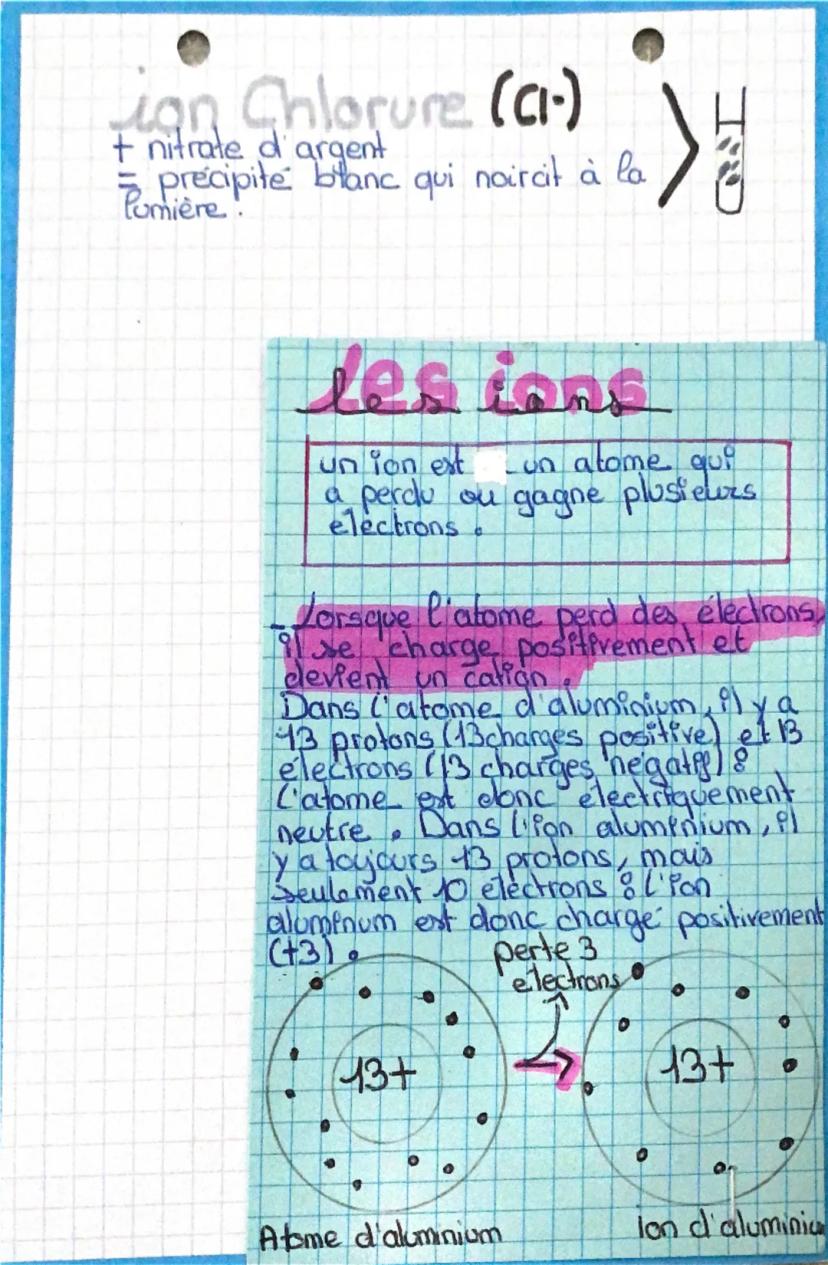 ion Chlorure (Cl-)
+ nitrate d'argent
= précipité blanc qui noircit à la
lumière.
les ions
les ions
un ion est un atome qui
a perdu ou gagne plusieurs
électrons.
- Lorsque l'atome perd des électrons,
il se charge positivement et
devient un cation.
Dans l'atome d'aluminium, il y a
13 protons (13 charges positive) et 13
électrons (13 charges négatif) :
L'atome est donc électriquement
neutre. Dans l'ion aluminium, il
y a toujours 13 protons, mais
seulement 10 électrons : l'ion
alumenum est donc chargé positivement
(+3).
perte 3
électrons
13+
13+
Atome d'aluminium
ion d'aluminium